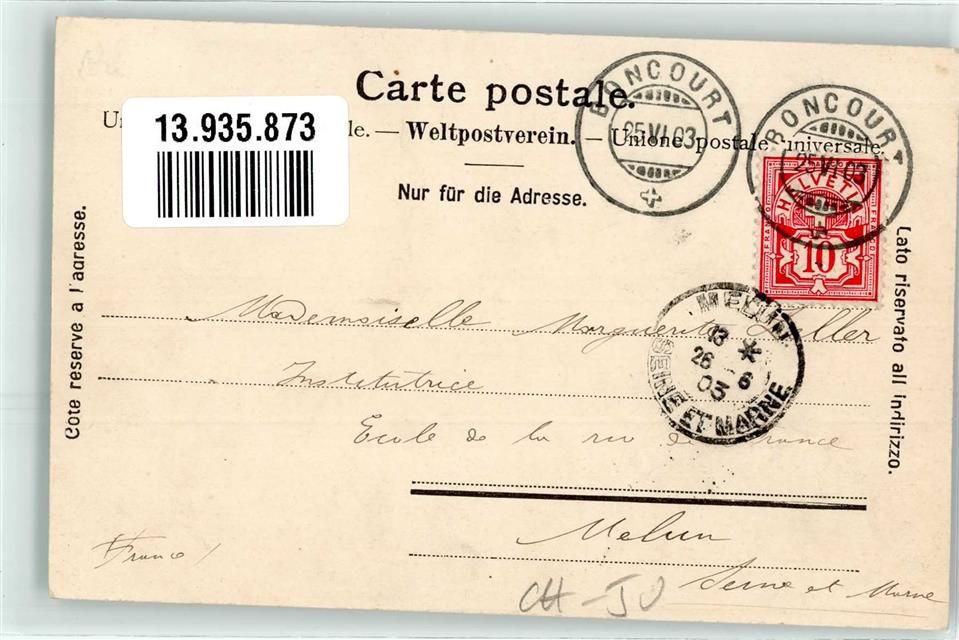 Carte postale.
13.935.873
Un le. — Weltpostverein. — Unione postale universale.
Nur für die Adresse.
BONCOURT
25 VI 03
BONCOURT
25 VI 03
HELVETIA
FRANCO FRANCO
10
Côté réservé à l'adresse.
Lato riservato all indirizzo.
MELUN
13 *
26 6
03
SEINE ET MARNE
Mademoiselle Marguerite ller
Institutrice
Ecole de la rue de France
Melun
Seine et Marne
(France)
CH - 50